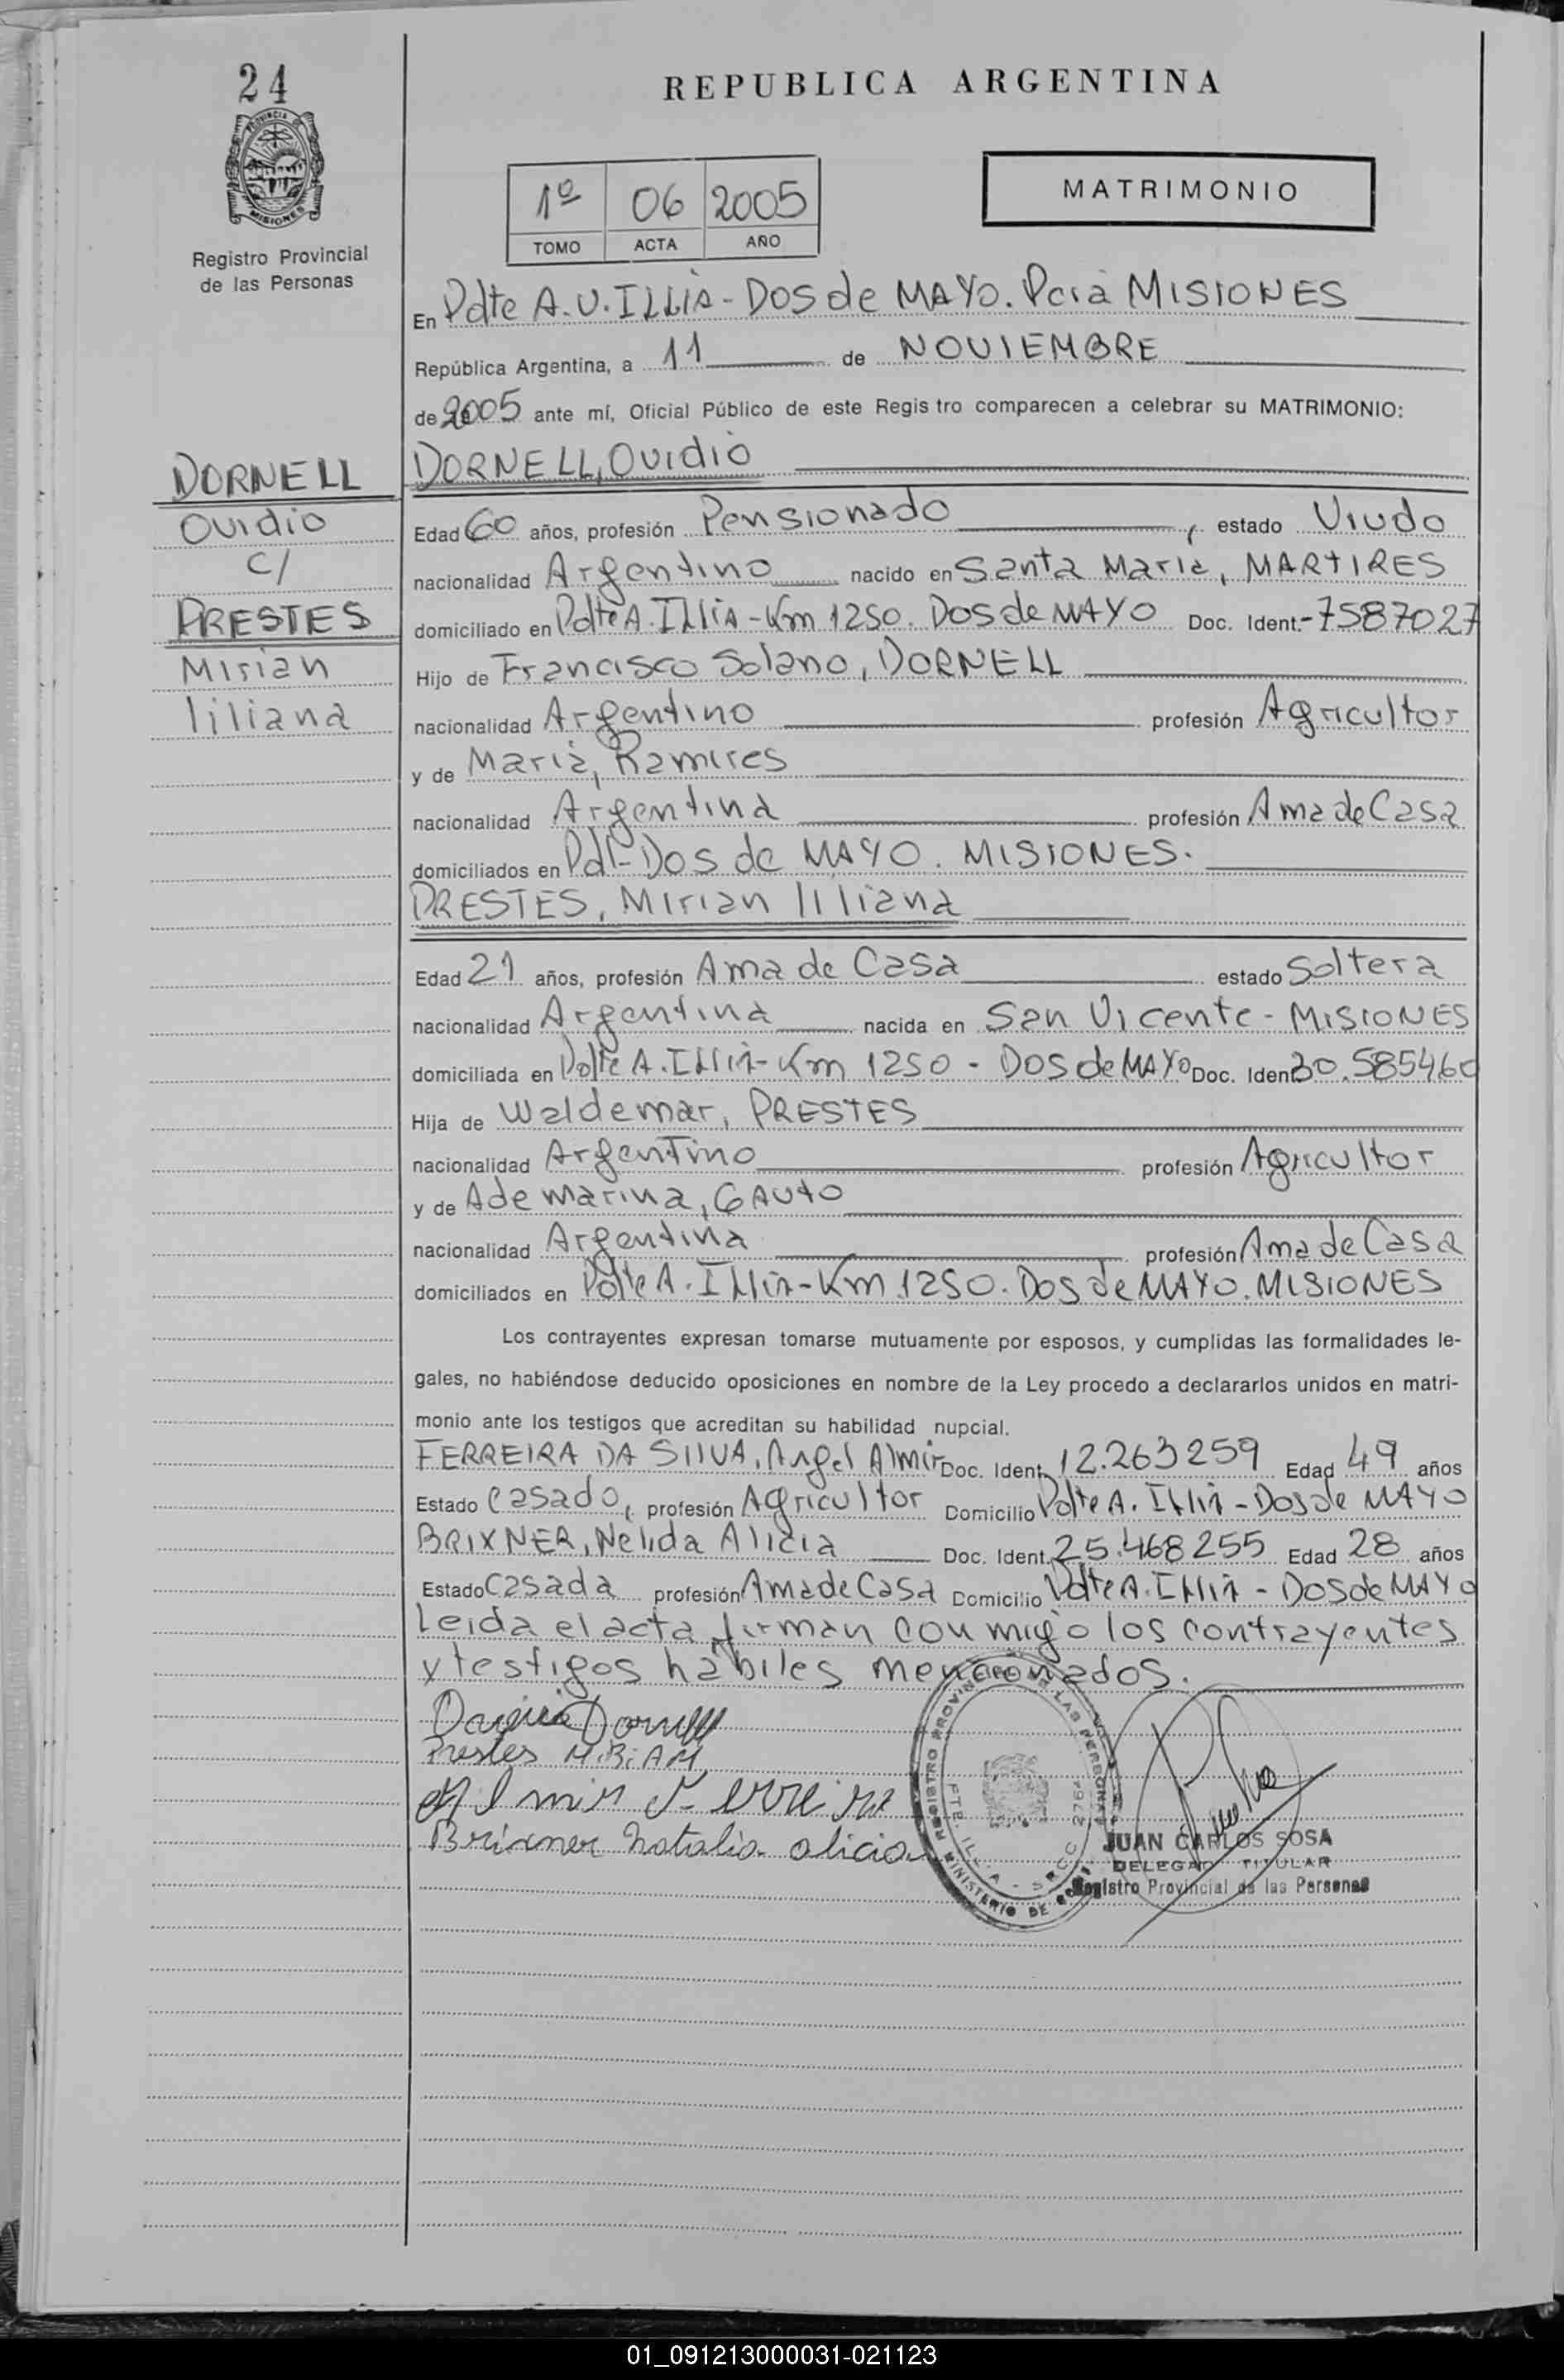 24
REPUBLICA ARGENTINA
PROVINCIA DE
MISIONES
Registro Provincial
de las Personas
1º 06 2005
TOMO ACTA AÑO
MATRIMONIO
En Pdte A.U. ILLIA - DOS de MAYO. Pcia MISIONES
República Argentina, a 11 de NOVIEMBRE
de 2005 ante mí, Oficial Público de este Regis tro comparecen a celebrar su MATRIMONIO:
DORNELL
Ovidio
C/
PRESTES
Mirian
liliana
DORNELL, Ovidio
Edad 60 años, profesión Pensionado, estado Viudo
nacionalidad Argentino nacido en Santa Maria, MARTIRES
domiciliado en Pdte A. Illia - Km 1250. DOS de MAYO Doc. Ident. - 7587027
Hijo de Francisco Solano, DORNELL
nacionalidad Argentino profesión Agricultor
y de Maria, Ramires
nacionalidad Argentina profesión Ama de Casa
domiciliados en Pdl - DOS de MAYO. MISIONES.
PRESTES, Mirian liliana
Edad 21 años, profesión Ama de Casa estado Soltera
nacionalidad Argentina nacida en San Vicente - MISIONES
domiciliada en Pdte A. Illia - Km 1250 - DOS de MAYO Doc. Ident 30.585460
Hija de Waldemar, PRESTES
nacionalidad Argentino profesión Agricultor
y de Ade marina, GAUTO
nacionalidad Argentina profesión Ama de Casa
domiciliados en Pdte A. Illia - Km 1250. DOS de MAYO. MISIONES
Los contrayentes expresan tomarse mutuamente por esposos, y cumplidas las formalidades le-
gales, no habiéndose deducido oposiciones en nombre de la Ley procedo a declararlos unidos en matri-
monio ante los testigos que acreditan su habilidad nupcial.
FERREIRA DA SIlVA, Angel Almir Doc. Ident. 12.263259 Edad 49 años
Estado Casado, profesión Agricultor Domicilio Pdte A. Illia - Dos de MAYO
BRIXNER, Nelida Alicia Doc. Ident. 25.468255 Edad 28 años
Estado Casada profesión Ama de Casa Domicilio Pdte A. Illia - DOS de MAYO
Leida el acta firman con migo los contrayentes
y testigos habiles mencionados.
Dornell
Prestes MiRiAM
Almir Ferreira
Brixner Natalia alicia
REGISTRO PROVINCIAL DE LAS PERSONAS
MINISTERIO DE
JUAN CARLOS SOSA
DELEGADO TITULAR
Registro Provincial de las Personas
01_091213000031-021123